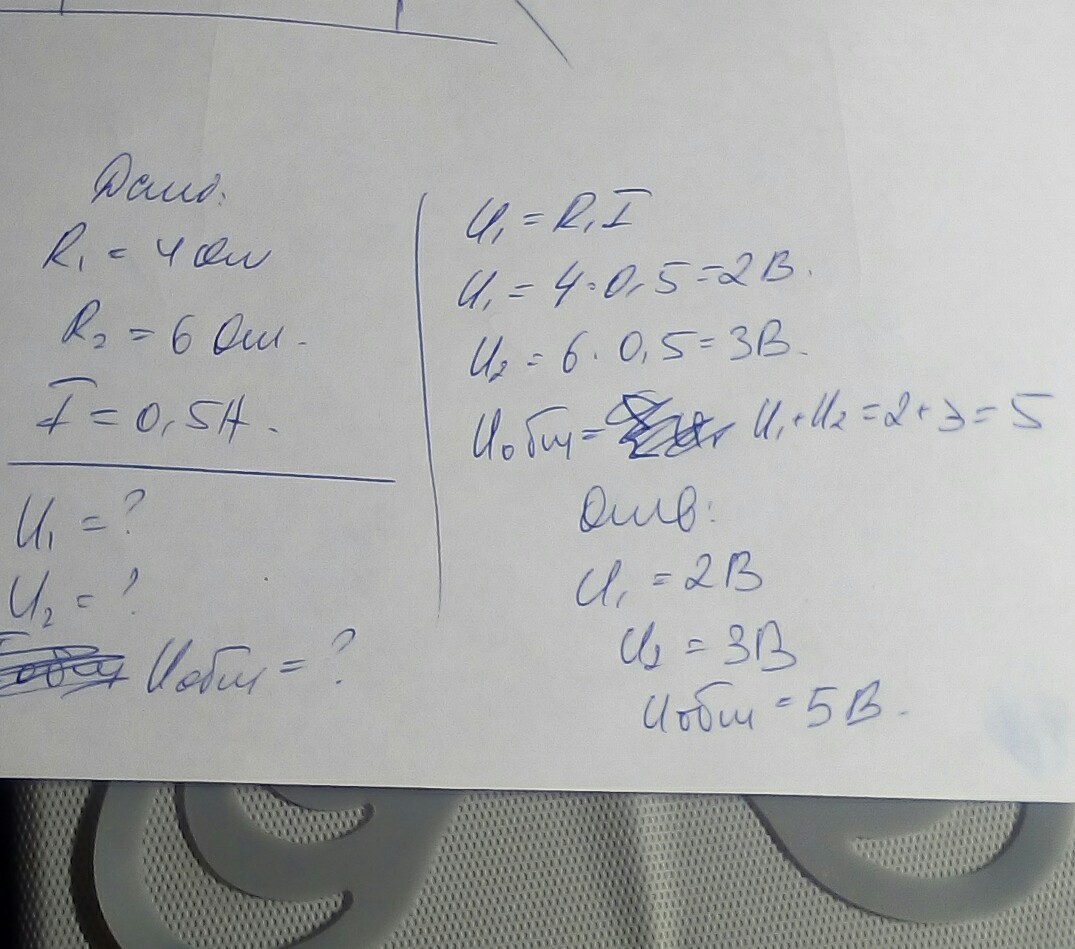 Дано:
R₁ = 4 Ом
R₂ = 6 Ом.
I = 0,5А.
U₁ = ?
U₂ = ?
Uобщ = ?
U₁ = R₁I
U₁ = 4·0,5=2В.
U₂ = 6·0,5=3В.
Uобщ= U₁+U₂=2+3=5
Отв:
U₁ = 2В
U₂ = 3В
Uобщ = 5В.